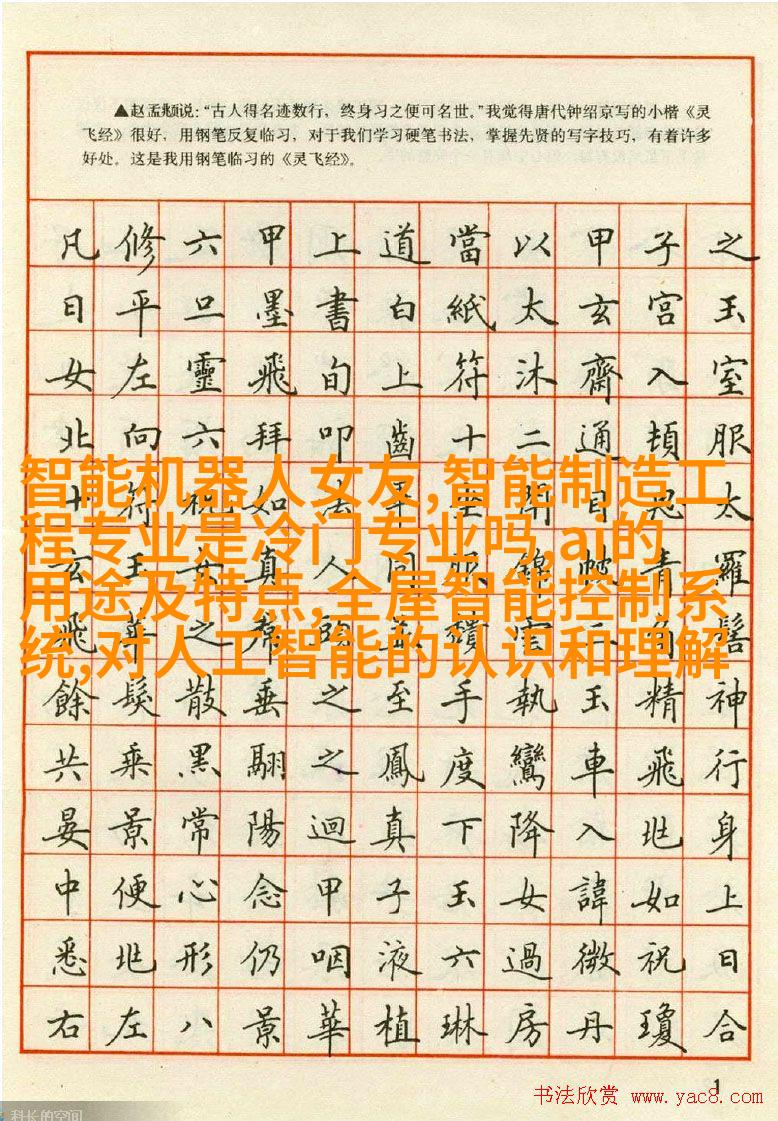 ▲赵孟頫说：“古人得名迹数行，终身习之便可名世。”我觉得唐代钟绍京写的小楷《灵
飞经》很好，用钢笔反复临习，对于我们学习硬笔书法，掌握先贤的写字技巧，有着许多
好处。这是我用钢笔临习的《灵飞经》。
凡修六甲上道當以甲子之
日平旦墨書白紙太玄宮玉
女左靈飛旬上符沐齋入室
北向六拜叩齒十二通頓服
智能机器人女友,智能制造工
程专业是冷门专业吗,ai的
用途及特点,全屋智能控制系
统,对人工智能的认识和理解
十符祝如法畢坐閉目思太
玄玉女真人同服錦帔青羅
飛華之
餘髮散垂之至手執玉精神
共乘黑翮之鳳度鸞車飛行
晏景常陽迴真下降入兆身
中便心念甲子玉女諱如上
悉兆形仍咽液六過微祝日
右左八景華植琳房丹瓊合
1
书法欣赏 www.yac8.com
科长的空间